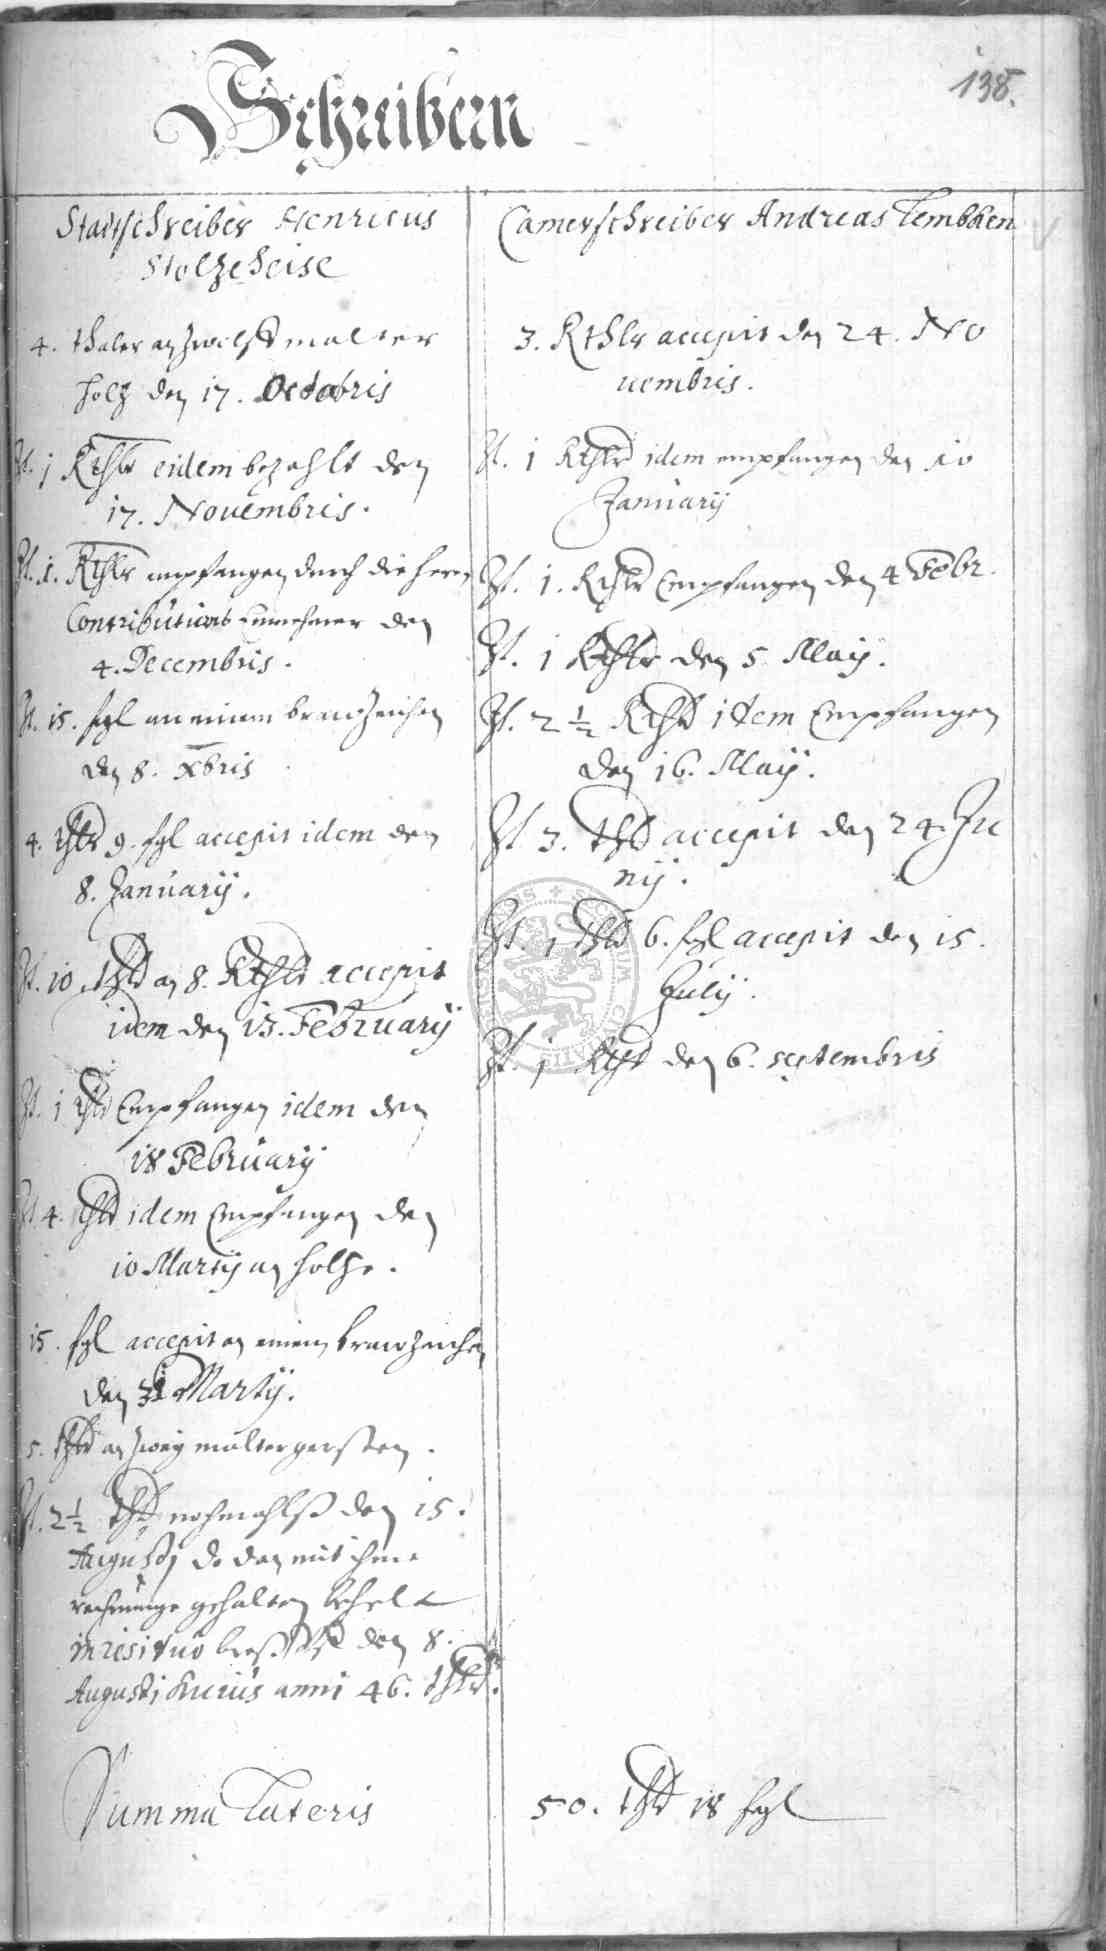 138.
Schreibern
Stadtschreiber Henricus
Stolzeheise
4. thaler an zwölff malter
holz den 17. Octobris
It. 1 Rthlr eidem bezahlt den
17. Nouembris.
It. 1. Rthlr empfangen durch die herrn
Contributions Einnehmer den
4. Decembris.
It. 15. sgl an einem brawzeichen
den 8. Xbris
4. thlr 9. sgl accepit idem den
8. January.
It. 10. thlr an 8. Rthlr accepit
idem den 13. February
It. 1 thlr Empfangen idem den
18 February
It. 4. thlr idem Empfangen den
10 Marty an holtze.
15. sgl accepit an einem brawzeichen
den 31 Marty.
5. thlr an zwey malter gersten.
It. 2 1/2 thlr nochmahlß den 15.
Augusti do den mit ihme
rechnunge gehalten behelt
in residuo den 8.
Augusti huius anni 46. thlr.
Camerschreiber Andreas Lembken
3. Rthlr accepit den 24. No
uembris.
It. 1 Rthlr idem empfangen den 10
January
It. 1. Rthlr Empfangen den 4 Febr.
It. 1 Rthlr den 5 Maij.
It. 2 1/2 Rthlr idem Empfangen
den 16. Maij.
It. 3. thlr accepit den 24. Ju
nij.
It. 1 thlr 6. sgl accepit den 15.
July.
It. 1 Rthlr den 6. septembris
Summa Lateris 50. thlr 18 sgl